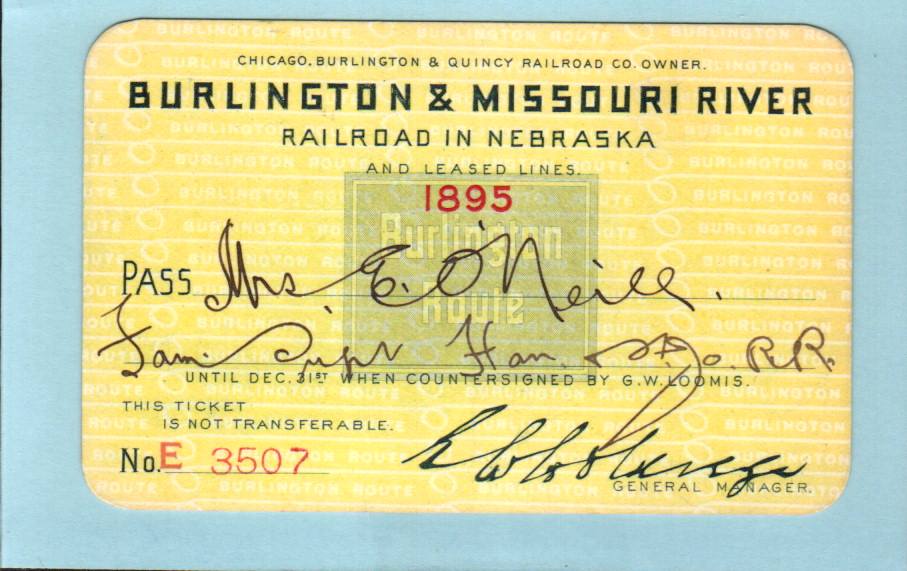 CHICAGO, BURLINGTON & QUINCY RAILROAD CO. OWNER.
BURLINGTON & MISSOURI RIVER
RAILROAD IN NEBRASKA
AND LEASED LINES.
1895
Burlington
Route
PASS Mrs. E. O'Neill.
Fam. Supt Han. & St. Jo. R.R.
UNTIL DEC. 31ST WHEN COUNTERSIGNED BY G.W. LOOMIS.
THIS TICKET
IS NOT TRANSFERABLE.
No. E 3507
GENERAL MANAGER.